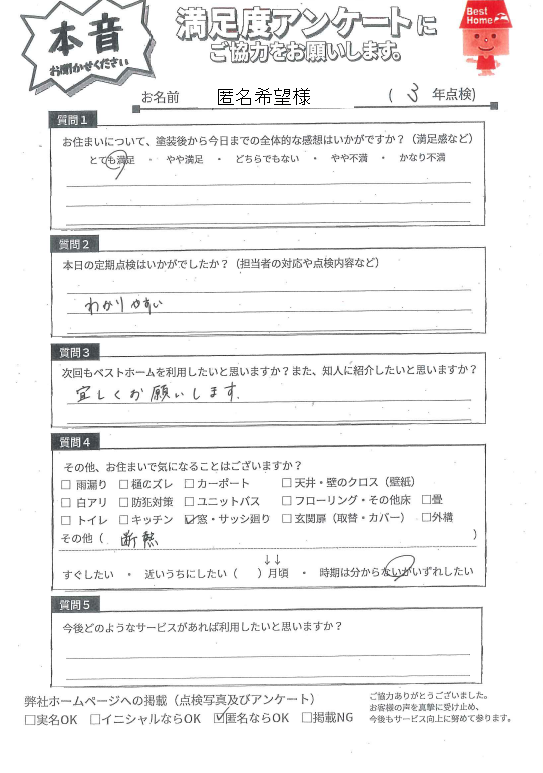 本音
お聞かせください
満足度アンケートに
ご協力をお願いします。
Best Home
お名前 匿名希望様 ( 3 年点検)
質問1
お住まいについて、塗装後から今日までの全体的な感想はいかがですか?(満足感など)
とても満足 ・ やや満足 ・ どちらでもない ・ やや不満 ・ かなり不満
質問2
本日の定期点検はいかがでしたか?(担当者の対応や点検内容など)
わかりやすい
質問3
次回もベストホームを利用したいと思いますか?また、知人に紹介したいと思いますか?
宜しくお願いします.
質問4
その他、お住まいで気になることはございますか?
□ 雨漏り □ 樋のズレ □ カーポート □ 天井・壁のクロス(壁紙)
□ 白アリ □ 防犯対策 □ ユニットバス □ フローリング・その他床 □畳
□ トイレ □ キッチン ☑窓・サッシ廻り □ 玄関扉(取替・カバー) □外構
その他( 断熱 )
↓↓
すぐしたい ・ 近いうちにしたい( )月頃 ・ 時期は分からないがいずれしたい
質問5
今後どのようなサービスがあれば利用したいと思いますか?
弊社ホームページへの掲載(点検写真及びアンケート)
□実名OK □イニシャルならOK ☑匿名ならOK □掲載NG
ご協力ありがとうございました。
お客様の声を真摯に受け止め、
今後もサービス向上に努めて参ります。